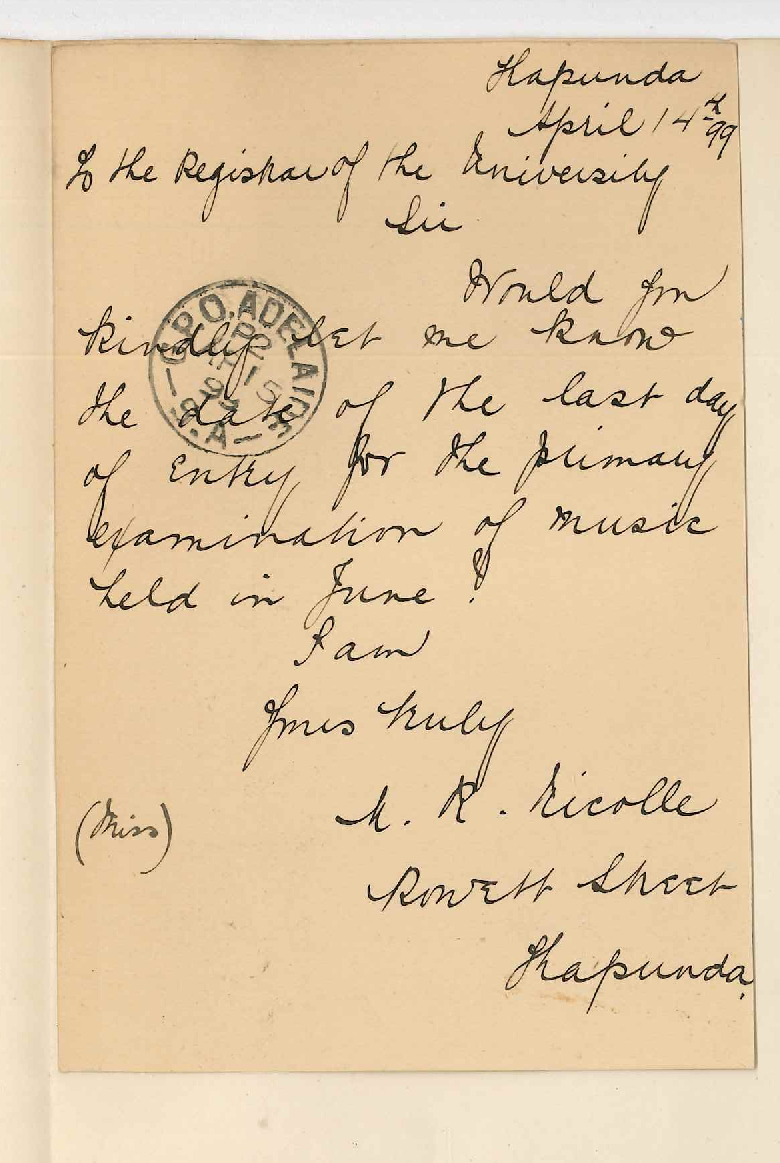 Kapunda
April 14th 99
To the Registrar of the University
Sir
Would you
kindly let me know
the date of the last day
of entry for the primary
examination of music
held in June?
I am
Yours truly
(Miss) M. R. Nicolle
Rowett Street
Kapunda.
G.P.O. ADELAIDE
AP 15
99
S.A